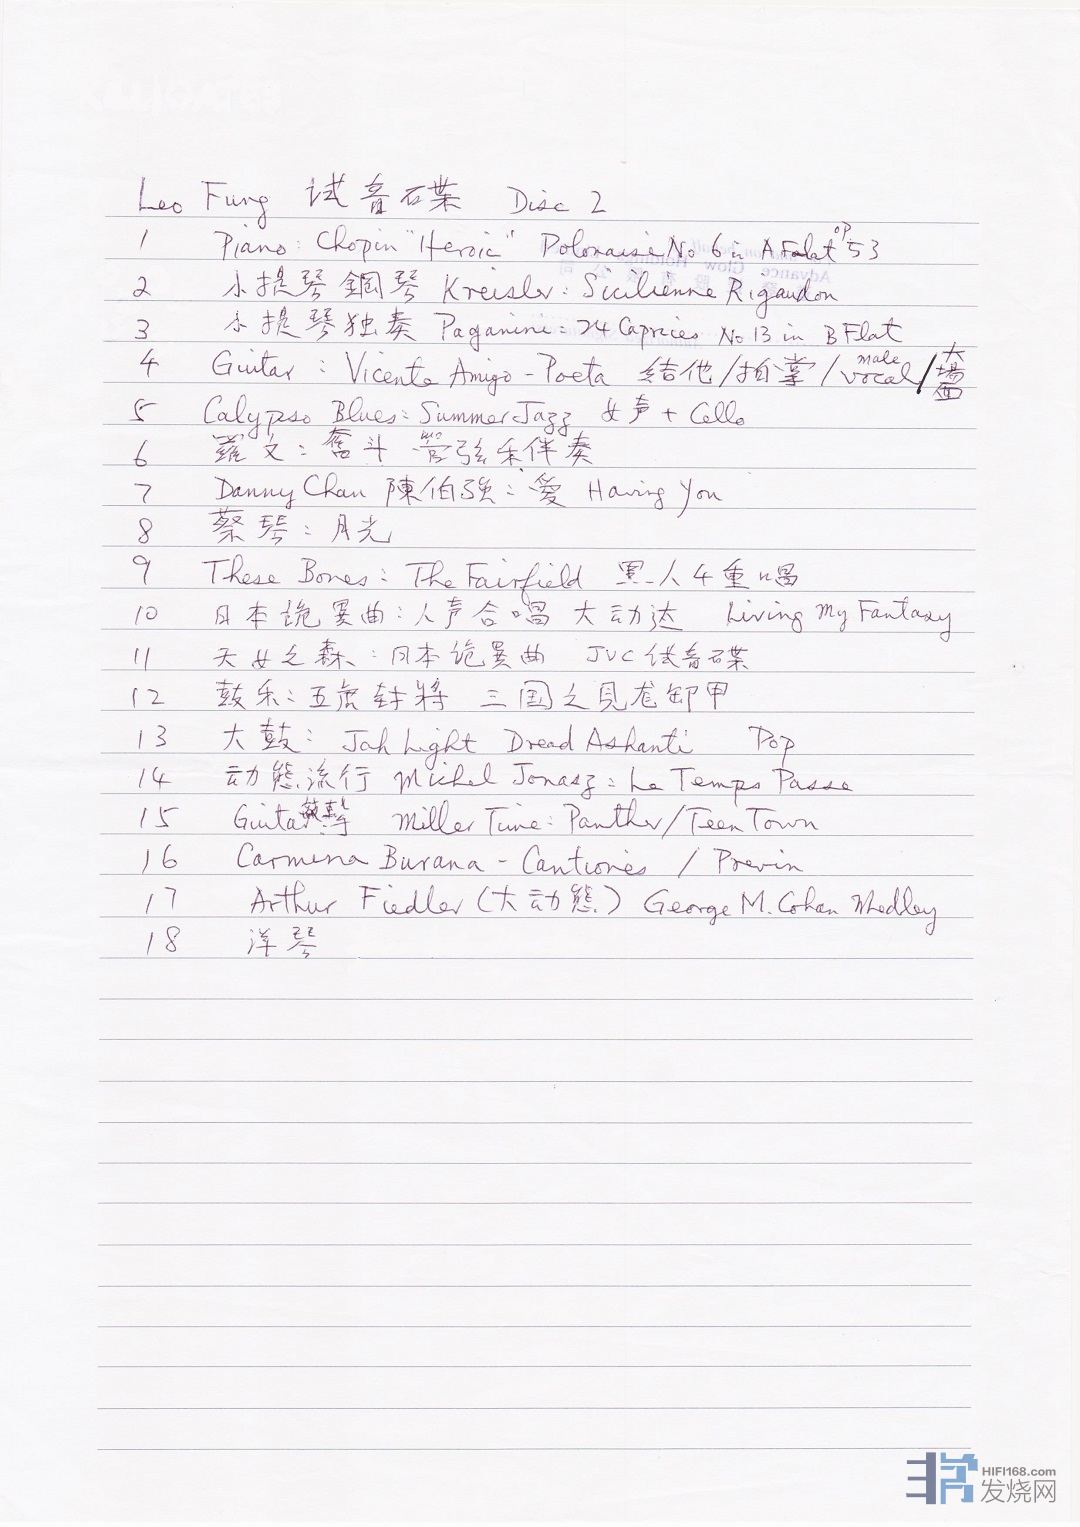 Leo Fung 试音碟 Disc 2
1 Piano: Chopin "Heroic" Polonaise No 6 in A Flat op 53
2 小提琴 鋼琴 Kreisler: Sicilienne Rigaudon
3 小提琴独奏 Paganini: 24 Caprices No 13 in B Flat
4 Guitar: Vicente Amigo - Poeta 结他/拍掌/male vocal/大場面
5 Calypso Blues: Summer Jazz 女声 + Cello
6 羅文: 奮斗 管弦乐伴奏
7 Danny Chan 陳伯強: 愛 Having You
8 蔡琴: 月光
9 These Bones: The Fairfield 黑人4重唱
10 日本詭異曲: 人声合唱 大动达 Living My Fantasy
11 天女之森: 日本詭異曲 JVC 试音碟
12 鼓乐: 五虎封将 三国之見龙卸甲
13 大鼓: Jah Light Dread Ashanti Pop
14 动態流行 Michel Jonasz: Le Temps Passe
15 Guitar 敲擊 Miller Time: Panther/Teen Town
16 Carmina Burana - Cantiones / Previn
17 Arthur Fiedler (大动態) George M. Cohan Medley
18 洋琴
HIFI168.com
发烧网